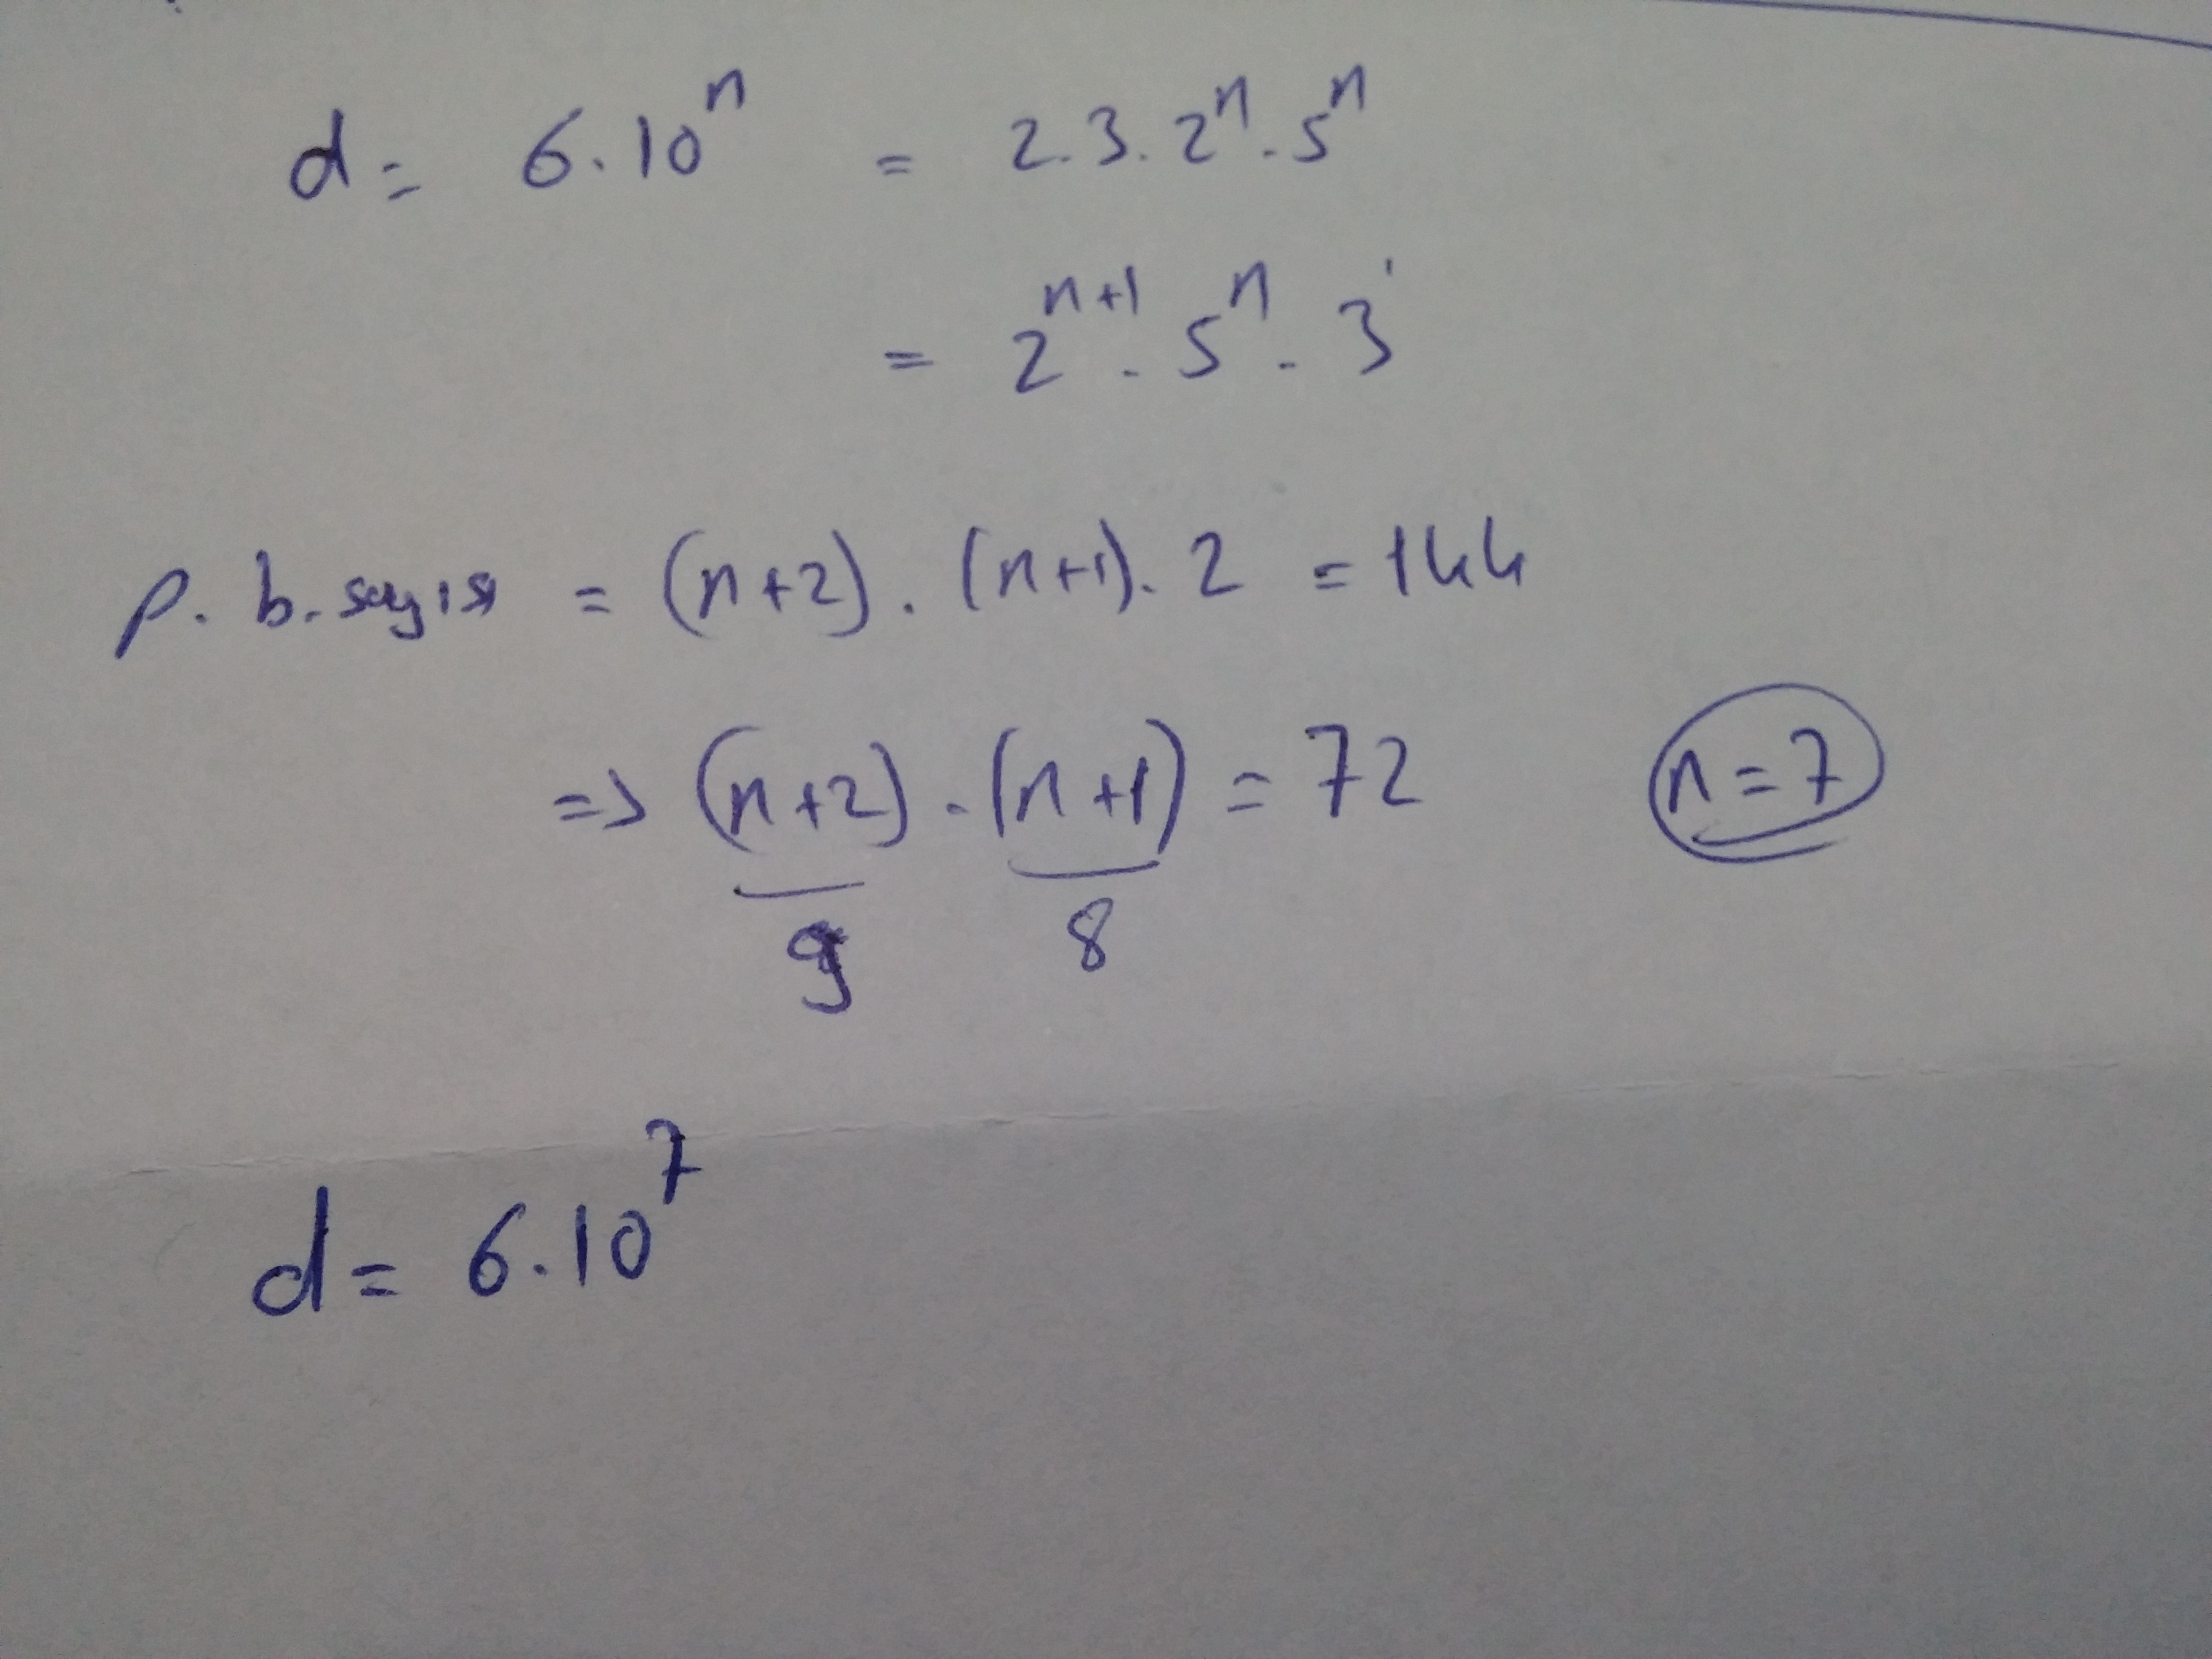 d = 6.10ⁿ = 2.3.2ⁿ.5ⁿ
= 2ⁿ⁺¹.5ⁿ.3¹
p. b. sayısı = (n+2).(n+1).2 = 144
=> (n+2).(n+1) = 72 n=7
9 8
d = 6.10⁷